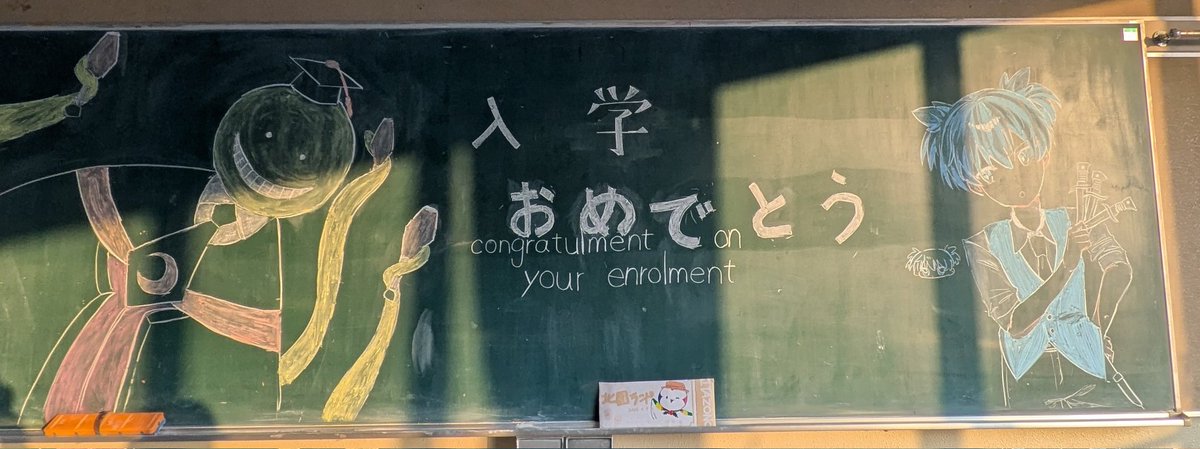 入学
おめでとう
congratulment on
your enrolment
北園ランド